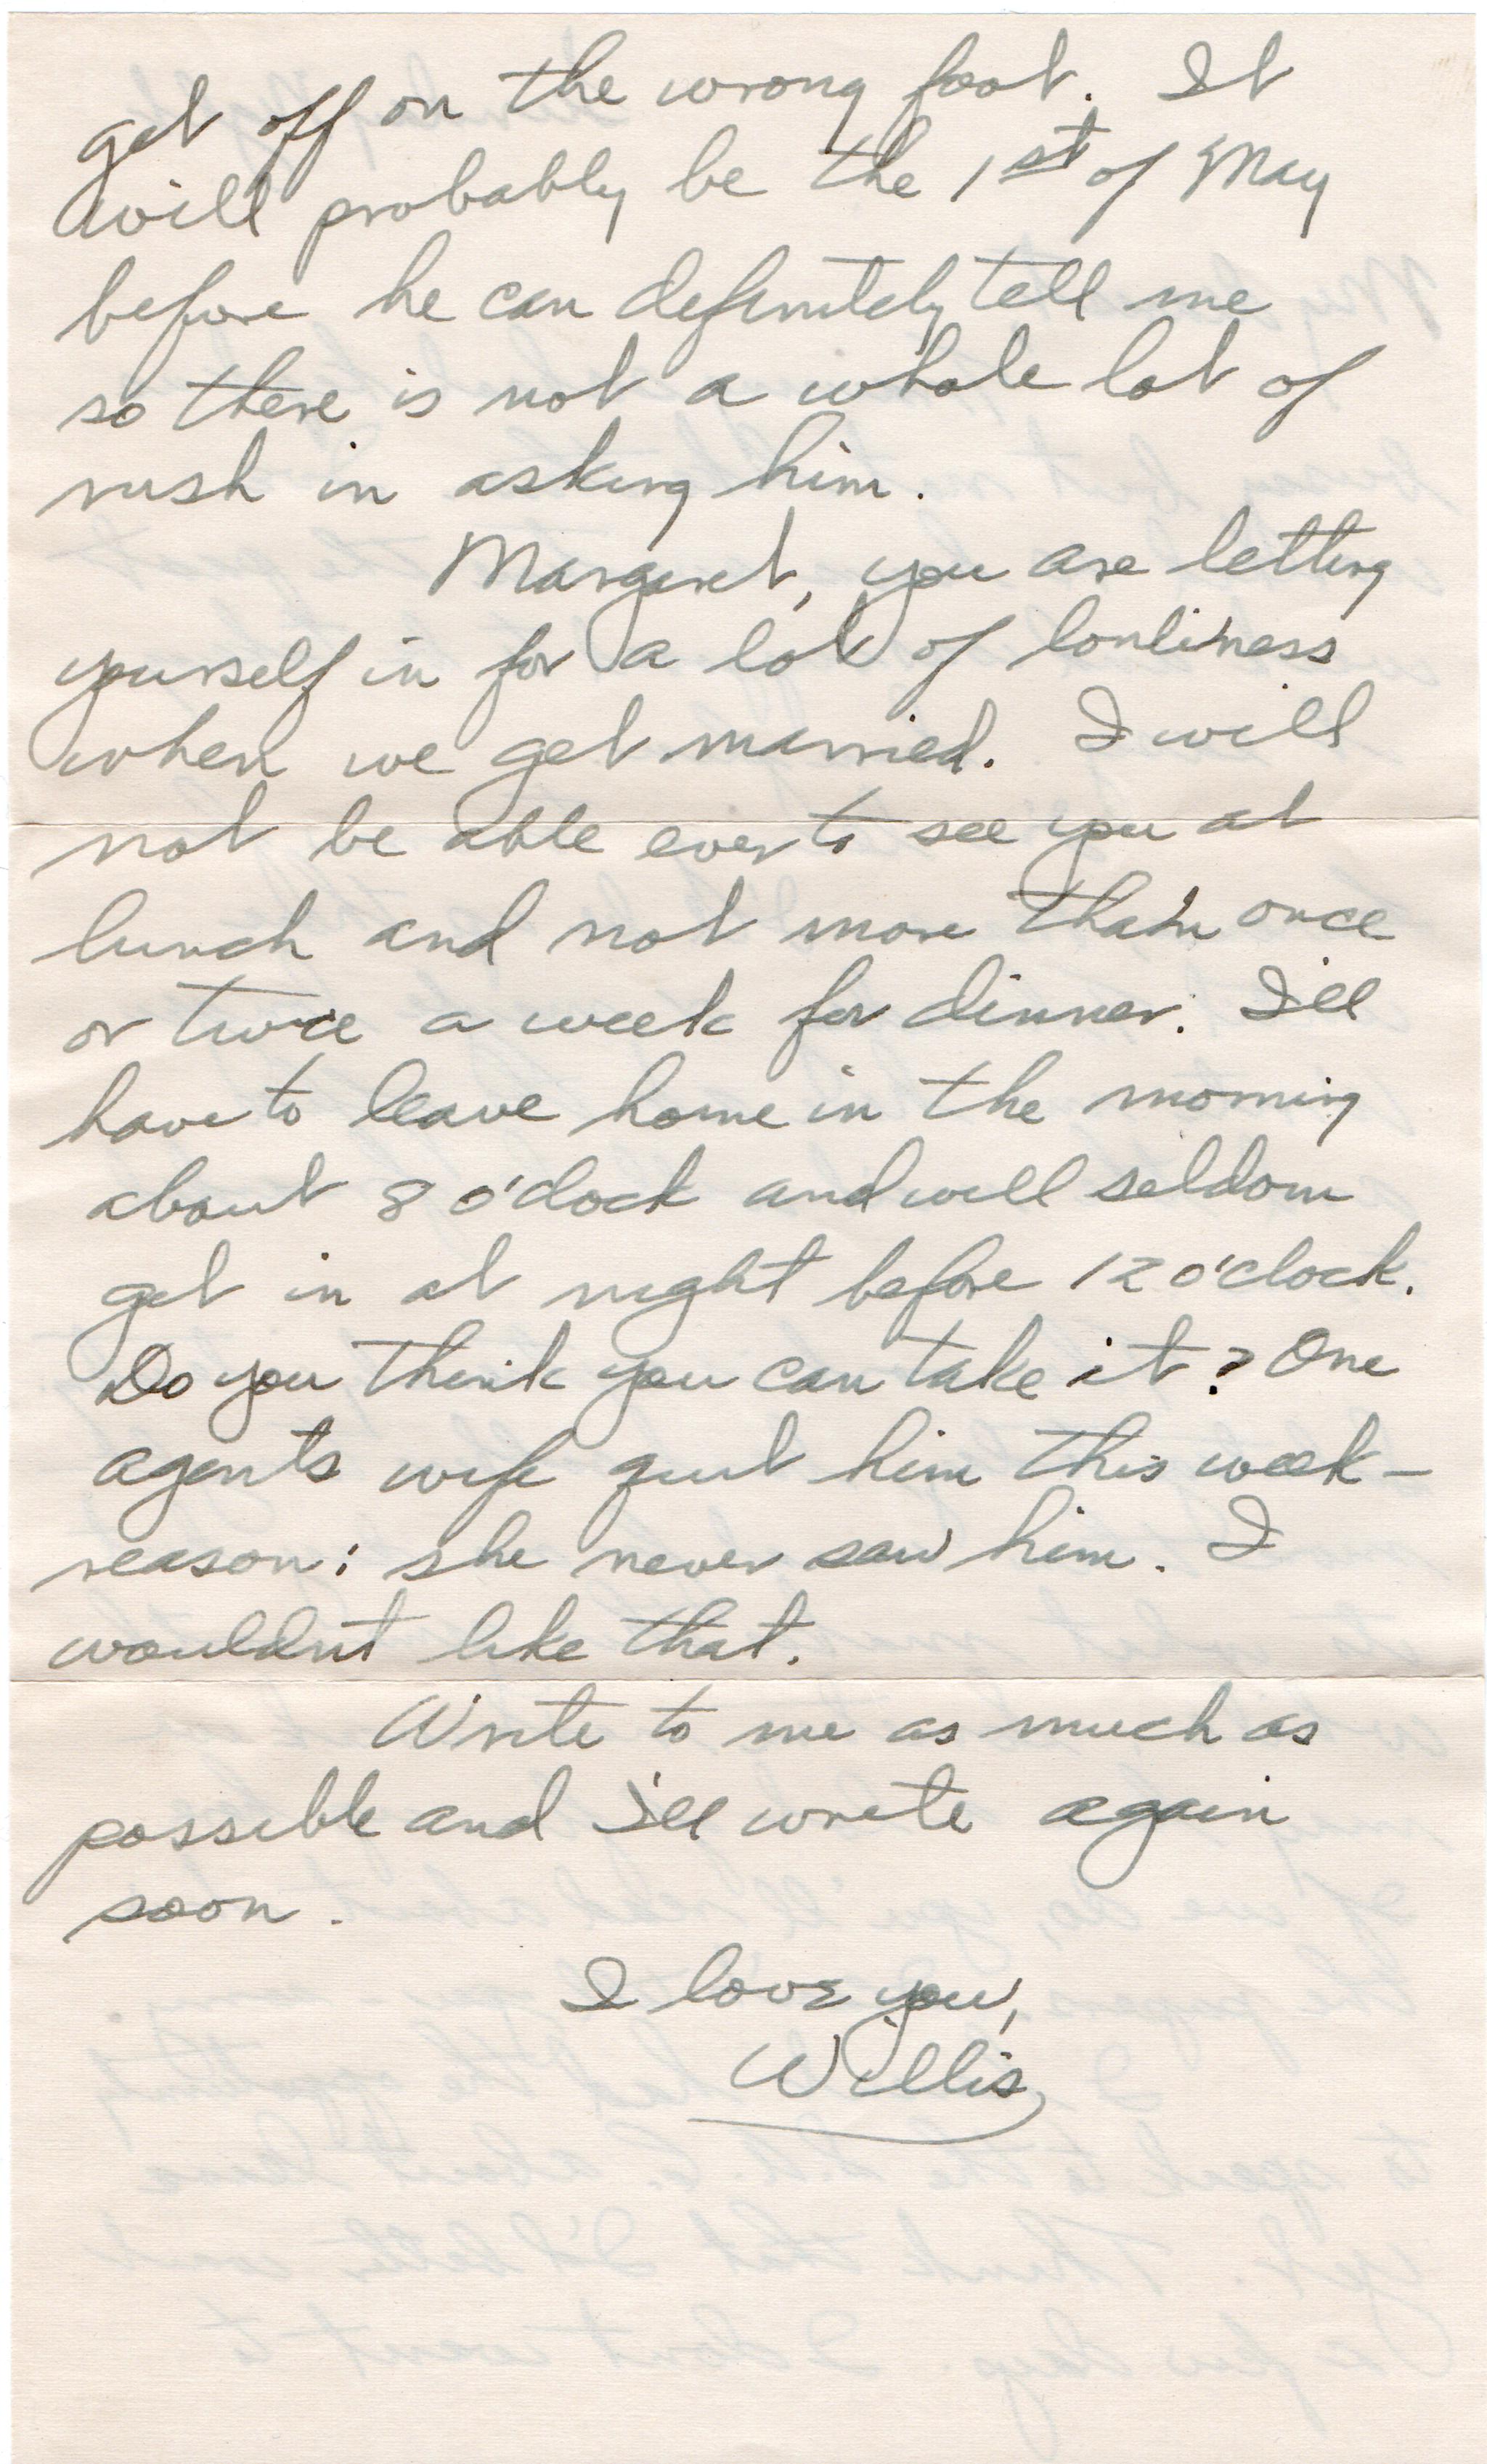 get off on the wrong foot. It
will probably be the 1st of May
before he can definitely tell me
so there is not a whole lot of
rush in asking him.
Margaret, you are letting
yourself in for a lot of lonliness
when we get married. I will
not be able even to see you at
lunch and not more than once
or twice a week for dinner. I'll
have to leave home in the morning
about 8 o'clock and will seldom
get in at night before 12 o'clock.
Do you think you can take it? One
agents wife quit him this week -
reason: she never saw him. I
wouldn't like that.
Write to me as much as
possible and I'll write again
soon.
I love you,
Willis